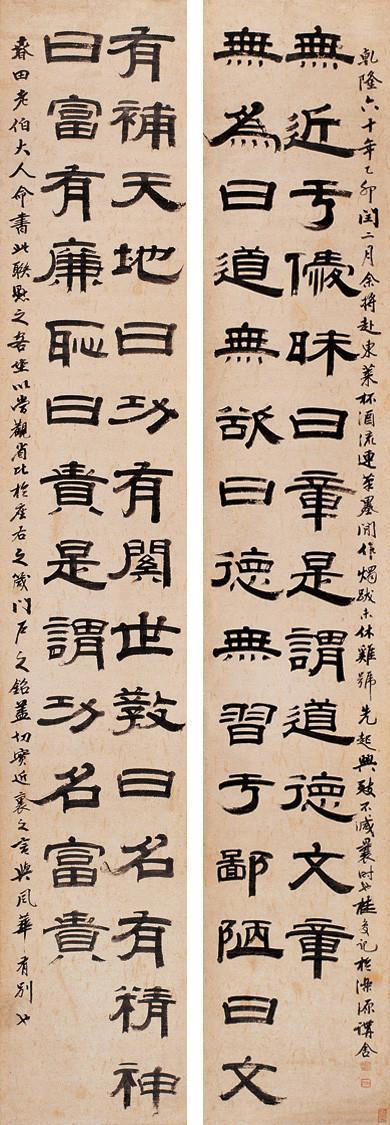 無為曰道無欲曰德無習于鄙陋曰文
無近于僾昧曰章是謂道德文章
乾隆六十年乙卯閏二月余將赴東萊杯酒流連筆墨間作燭跋未休雞號先起興致不減曩時也桂馥記於濼源講舍
有補天地曰功有關世教曰名有精神
曰富有廉恥曰貴是謂功名富貴
春田老伯大人命書此聯懸之吾坐以當觀省比於座右之箴門戶之銘蓋切實近裏之言與風華有別也